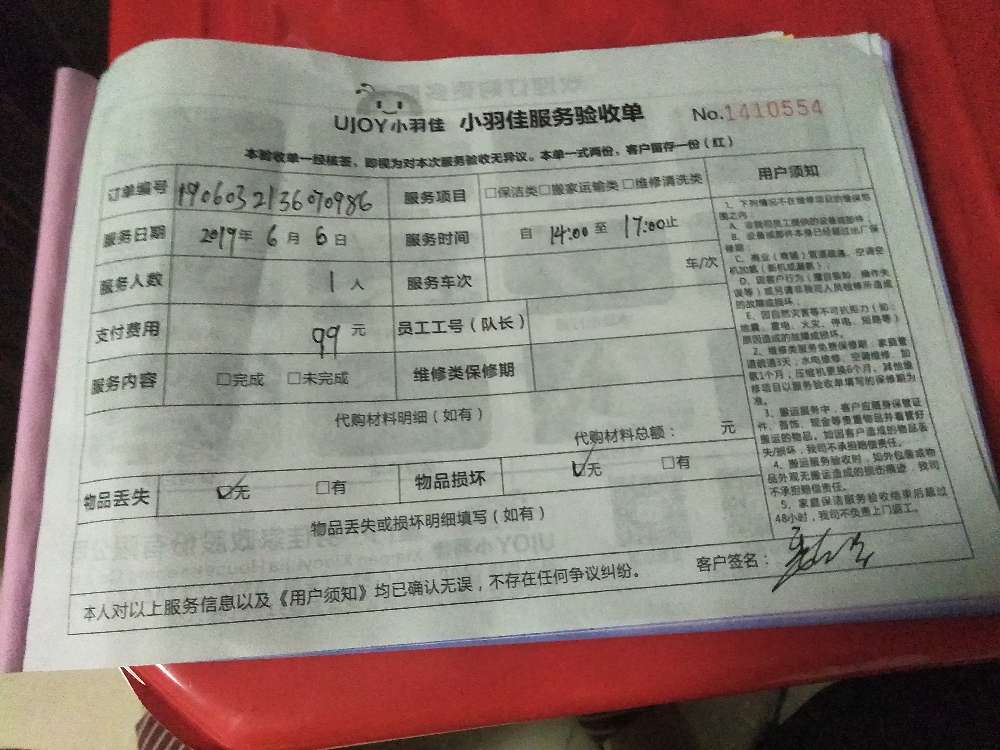 UJOY小羽佳 小羽佳服务验收单 No.1410554
本验收单一经核签，即视为对本次服务验收无异议。本单一式两份，客户留存一份（红）
订单编号 190603213607098​6 服务项目 □保洁类□搬家运输类□维修清洗类
服务日期 2019年6月6日 服务时间 自 14:00 至 17:00止
服务人数 1人 服务车次 车/次
支付费用 99元 员工工号（队长）
服务内容 □完成 □未完成 维修类保修期
代购材料明细（如有）
代购材料总额： 元
物品丢失 ☑无 □有 物品损坏 ☑无 □有
物品丢失或损坏明细填写（如有）
本人对以上服务信息以及《用户须知》均已确认无误，不存在任何争议纠纷。 客户签名：
用户须知
1、下列情况不在维修项目的维保范
围之内：
A、非我司员工提供的设备或部件；
B、设备或部件本身已经超过出厂保
修期；
C、商业（商铺）管道疏通、空调空
机加氟（新机或漏氟）；
D、因客户行为（擅自装卸、操作失
误等）或另请非我司人员检修所造成
的故障或损坏；
E、因自然灾害等不可抗拒力（如：
地震、雷电、火灾、停电、短路等）
原因造成的故障或损坏。
2、维修类服务免费保修期：家庭管
道疏通3天；水电维修、空调维修、加
氟1个月；压缩机更换6个月。其他维
修项目以服务验收单填写的保修期为
准。
3、搬运服务中，客户应随身保管证
件、首饰、现金等贵重物品并看管好
搬运的物品，如因客户造成的物品丢
失/损坏，我司不承担赔偿责任。
4、搬运服务验收时，如外包装或物
品外观无搬运造成的损伤痕迹，我司
不承担赔偿责任。
5、家庭保洁服务验收结束后超过
48小时，我司不负责上门返工。